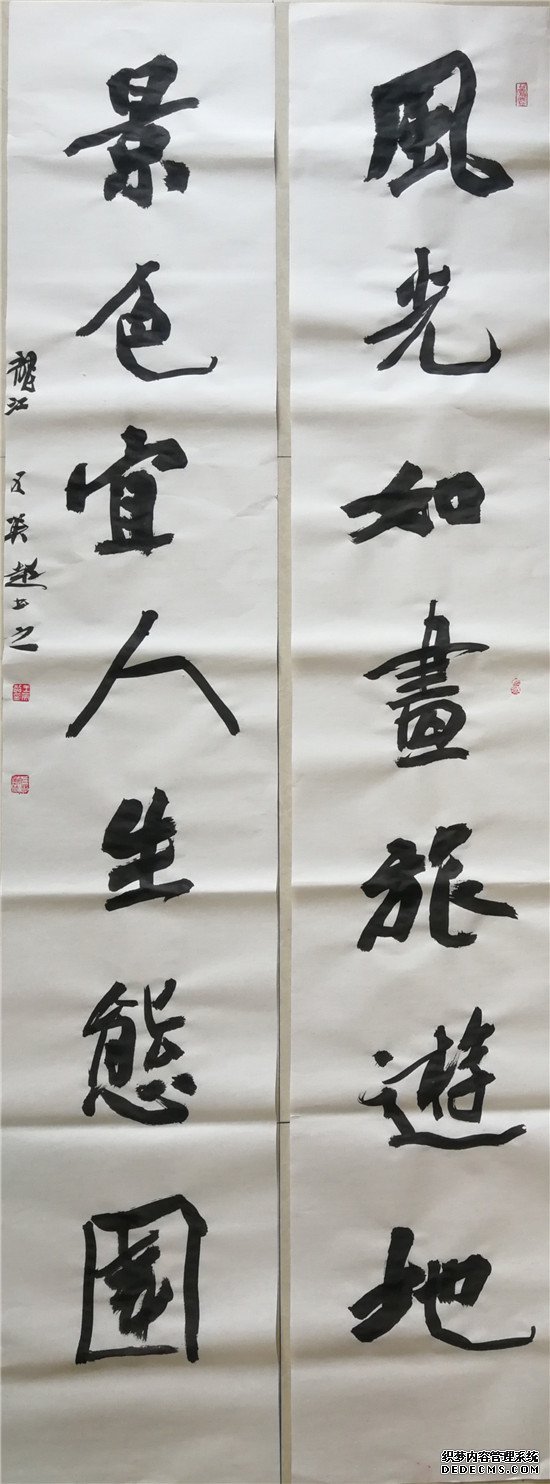 風光如畫旅遊地
景色宜人生態園
英越书之
织梦内容管理系统
DEDECMS.COM